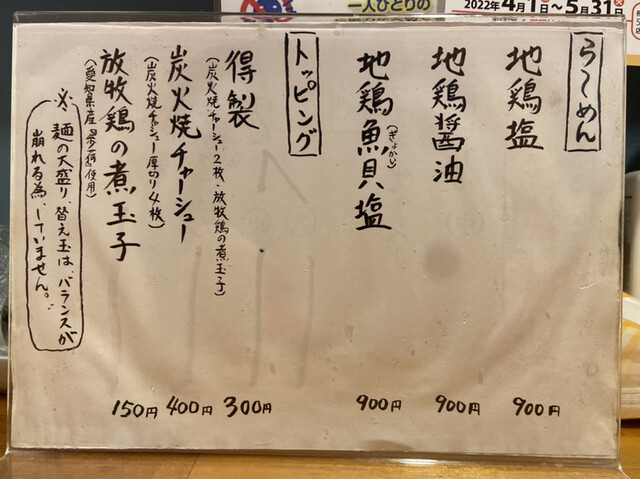 一人ひとりの
2022年4月1日～5月31日
らーめん
地鶏塩 900円
地鶏醤油 900円
地鶏魚貝塩 900円
(ぎょかい)
トッピング
得製 300円
(炭火焼チャーシュー2枚・放牧鶏の煮玉子)
炭火焼チャーシュー 400円
(炭火焼チャーシュー厚切り4枚)
放牧鶏の煮玉子 150円
※麺の大盛り、替え玉は、バランスが
崩れる為、していません。